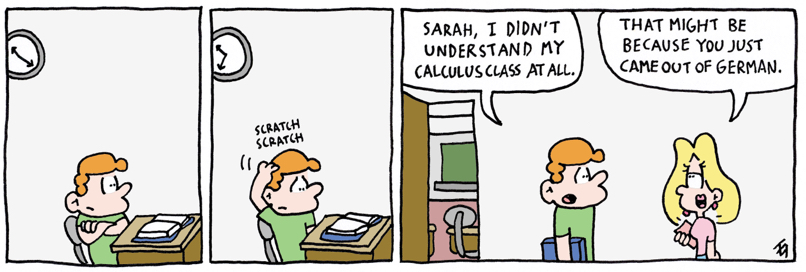 SCRATCH
SCRATCH
SARAH, I DIDN'T
UNDERSTAND MY
CALCULUS CLASS AT ALL.
THAT MIGHT BE
BECAUSE YOU JUST
CAME OUT OF GERMAN.